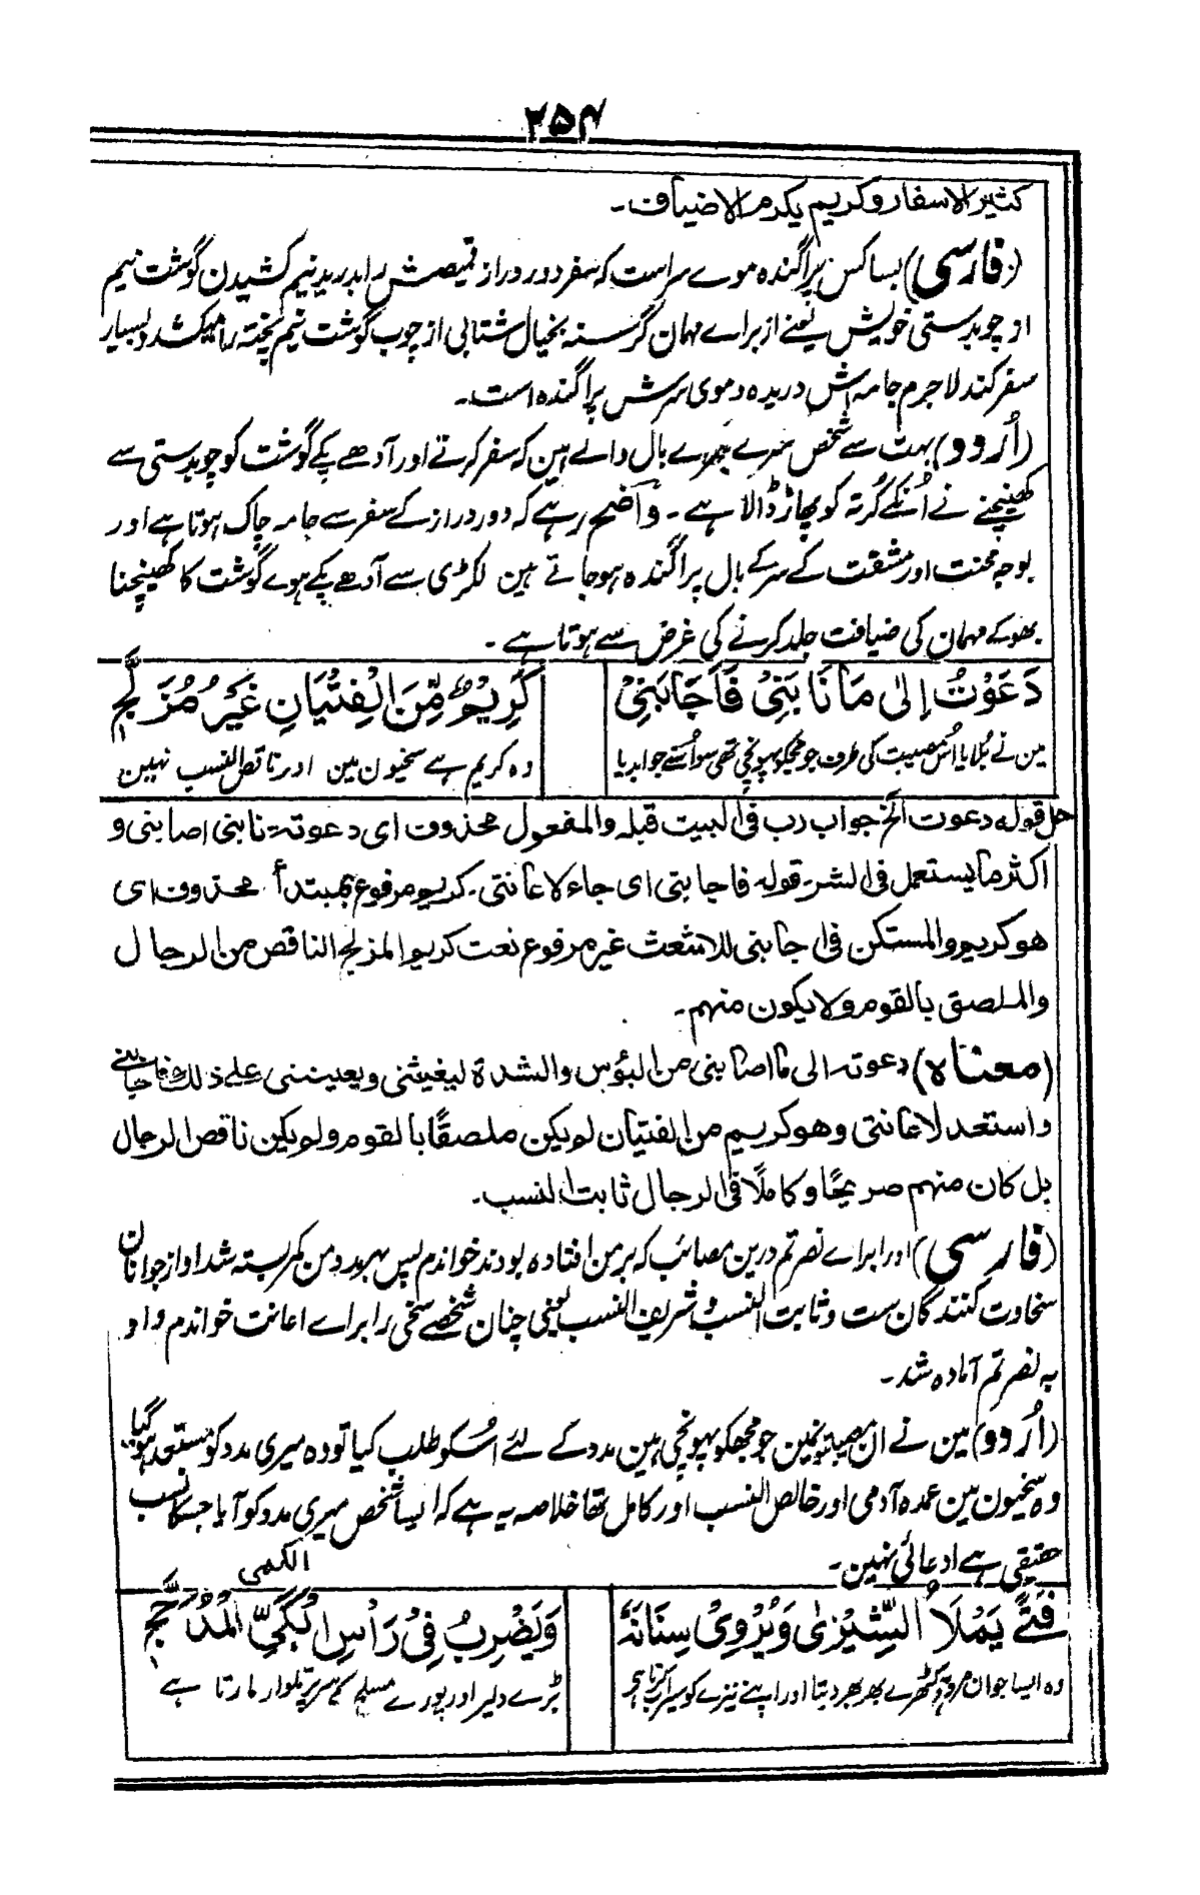 ۲۵۴
كثير الاسفار وكريم يكرم الاضياف۔
(فارسی) بساکس پراگندہ موے سراست کہ سفر دور دراز قمیصش را بدرید نیم کشیدن گوشت نیم
از چوبدستی خویش یعنے از براے مہمان گرسنہ بخیال شتابی از چوب گوشت نیم پختہ را میکشد و بسیار
سفر کند لاجرم جامہ اش دریدہ و موی سرش پراگندہ است۔
(اُردو) بہت سے شخص بال والے ہین کہ سفر کرتے اور آدھے پکے گوشت کو چوبدستی سے
کھینچنے نے اُنکے کُرتہ کو پھاڑ ڈالا ہے ۔ واضح رہے کہ دور دراز کے سفر سے جامہ چاک ہوتا ہے اور
بوجہ محنت اور مشقت کے سر کے بال پراگندہ ہوجاتے ہین لکڑی سے آدھے پکے ہوے گوشت کا کھینچنا
بھوکے مہمان کی ضیافت جلد کرنے کی غرض سے ہوتا ہے ۔
دَعَوْتُ اِلٰى مَا نَابَنِىْ فَاَجَابَنِىْ كَرِيْمٌ مِّنَ الْفِتْيَانِ غَيْرُ مُزَلَّجٖ
مین نے بُلایا اُس مصیبت کی طرف جو مجھکو پہونچی تھی سو اُسنے جواب دیا وہ کریم ہے سخیون مین اور ناقص النسب نہین
حل قوله دعوت الخ جواب رب فى البيت قبله والمفعول محذوف اى دعوته نابنى اصابنى و
اكثر ما يستعمل فى الشر قوله فاجابنى اى جاء لاعانتى۔ كريم مرفوع بمبتدأ محذوف اى
هو كريم والمستكن فى اجابنى للاشعث غير مرفوع نعت كريم المزلج الناقص من الرجال
والملصق بالقوم ولا يكون منهم۔
(معناه) دعوته الى ما اصابنى من البؤس والشدة ليغيثنى ويعيننى على ذلك فاجابنى
واستعد لاعانتى وهو كريم من الفتيان لم يكن ملصقًا بالقوم ولم يكن ناقص الرجال
بل كان منهم صريحًا وكاملًا فى الرجال ثابت النسب۔
(فارسی) اورا براے نصرتم درین مصائب کہ بر من افتادہ بودند خواندم پس بہر مدد من کمر بستہ شد او از جوانان
سخاوت کنندگان ست و ثابت النسب و شریف النسب یعنی چنان شخصے سخی را براے اعانت خواندم و او
بہ نصرتم آمادہ شد۔
(اُردو) مین نے ان مصیبتونمین جو مجھکو پہونچی ہین مدد کے لئے اُسکو طلب کیا تو وہ میری مدد کو مستعد ہوگیا
وہ سخیون مین عمدہ آدمی اور خالص النسب اور کامل تھا خلاصہ یہ ہے کہ ایسا شخص میری مدد کو آیا جسکا نسب
حقیقی ہے ادعائی نہین۔
الکمی
فَتًى يَمْلَأُ الشِّيْزٰى وَيُرْوِىْ سِنَانَهٗ وَيَضْرِبُ فِىْ رَأْسِ الْكَمِىِّ الْمُدَجَّجٖ
وہ ایسا جوان مرد ہے کٹھرے بھر بھر دیتا اور اپنے نیزے کو سیراب کرتا ہے بڑے دلیر اور پورے مسلح کے سر پر تلوار مارتا ہے